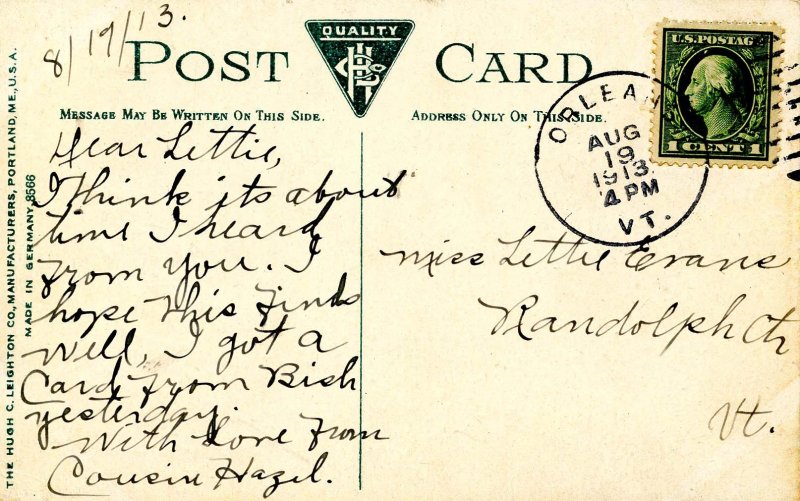 8/19/13.
POST CARD
QUALITY
HCL Co
MESSAGE MAY BE WRITTEN ON THIS SIDE.
ADDRESS ONLY ON THIS SIDE.
THE HUGH C. LEIGHTON CO., MANUFACTURERS, PORTLAND, ME., U.S.A.
MADE IN GERMANY 8566
Dear Lettie,
I think its about
time I heard
from you. I
hope this finds
well, I got a
Card from Bish
yesterday.
With Love from
Cousin Hazel.
U.S. POSTAGE
1 CENT 1
ORLEANS
AUG
19
1913
4 PM
VT.
Miss Lettie Evans
Randolph Ctr
Vt.